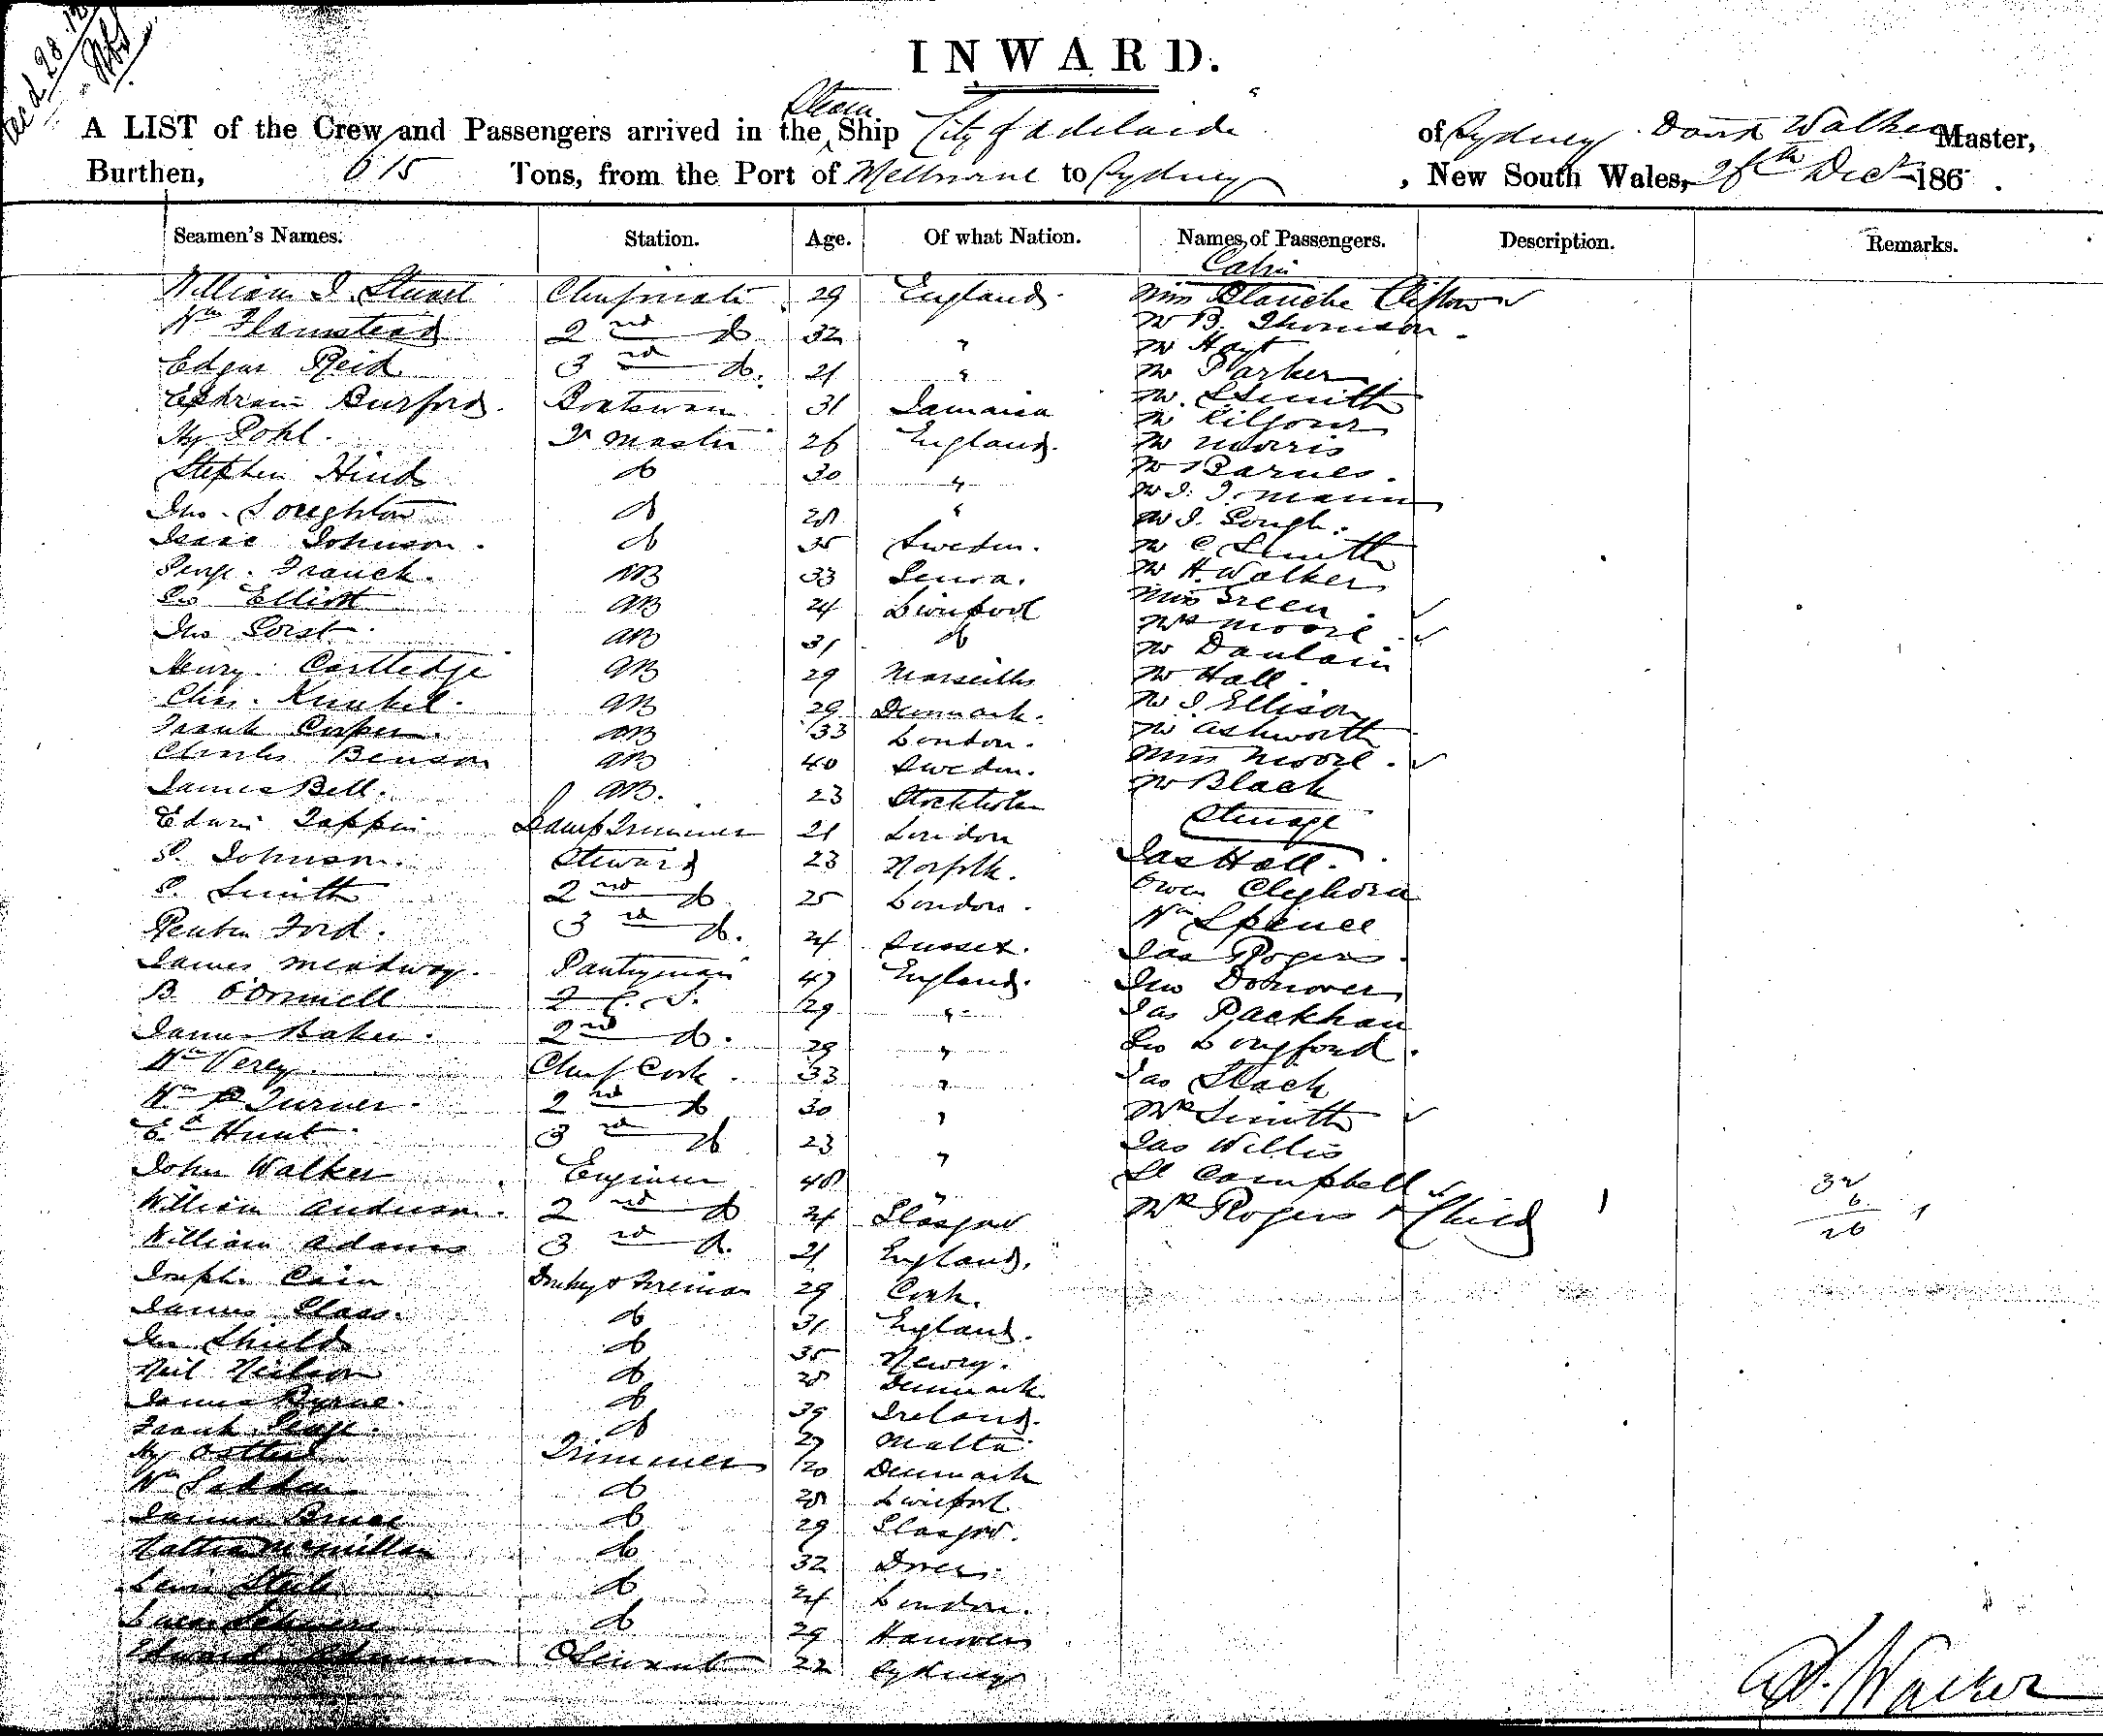 INWARD.
A LIST of the Crew and Passengers arrived in the Steam Ship City of Adelaide of Sydney David Walker Master,
Burthen, 615 Tons, from the Port of Melbourne to Sydney, New South Wales, 28th Decr 186 .
Seamen's Names. Station. Age. Of what Nation. Names of Passengers. Description. Remarks.
Cabin
William J. Stuart Chief mate 29 England. Miss Blanche Clifton
Wm Flamstead 2nd do 32 " Mr B. Thomson
Mr Hoyt
Edgar Reid 3rd do. 21 " Mr Parker
Ephraim Burford. Boatswain 31 Jamaica Mr Smith
Mr Kilgour
Hy Pohl. Qr Master 26 England. Mr Morris
Stephen Hind do 30 " Mr Barnes.
Mr J. J. Mann
Jno. Soughton do 28 " Mr J. Gough.
Isaac Johnson. do 35 Sweden. Mr C Smith
Franck. AB 33 Mr H. Walker
Geo Elliott AB 24 Liverpool Miss Green
Jno AB 31 do Mrs Moore
Mr
Henry Cartledge AB 29 Marseilles Mr Hall.
Chas. Kunkel. AB 29 Denmark. Mr J. Ellison
Frank Cooper. AB 33 London. Mr Ashworth
Charles Benson AB 40 Sweden. Miss Moore.
James Bell. AB. 23 Stockholm Mr Black
Edwin Tappin Lamp Trimmer 21 London Steerage
P. Johnson. Steward 23 Norfolk. Jas Hall.
S. Smith 2nd do 25 London. Owen Cleghorn
Reuben Ford. 3rd do. 24 Sussex. Wm Spence
Jas Rogers.
James Meadway. Pantryman 47 England. Jno Donover
B. O'Donnell 2 C. S. 29 " Jas Packham
James Baker. 2nd do. 29 " Geo Longford.
Wm Verey. Chief Cook. 33 " Jas Slack
Wm P Turner. 2nd do 30 " Mrs Smith
Ed Hunt 3rd do 23 " Jas Willis
John Walker Engineer 48 " Campbell
William Anderson. 2nd do 24 Glasgow Mrs Rogers & Child 1
32
6
26 1
William Adams 3rd do. 21 England.
Joseph Cain Donkey & Fireman 29 Cork.
James Glass. do 31 England.
Jno Shields do 35 Newry.
Neil Neilson do 28 Denmark
James Byrne. do 39 Ireland.
Frank George. do 27 Malta
Hy Trimmer 20 Denmark
Wm do 28 Liverpool.
James Bruce do 29 Glasgow.
McMillan do 32 Dover.
Steele do 24 London.
do 29 Hanover
Edward Servant 22 Sydney
D. Walker